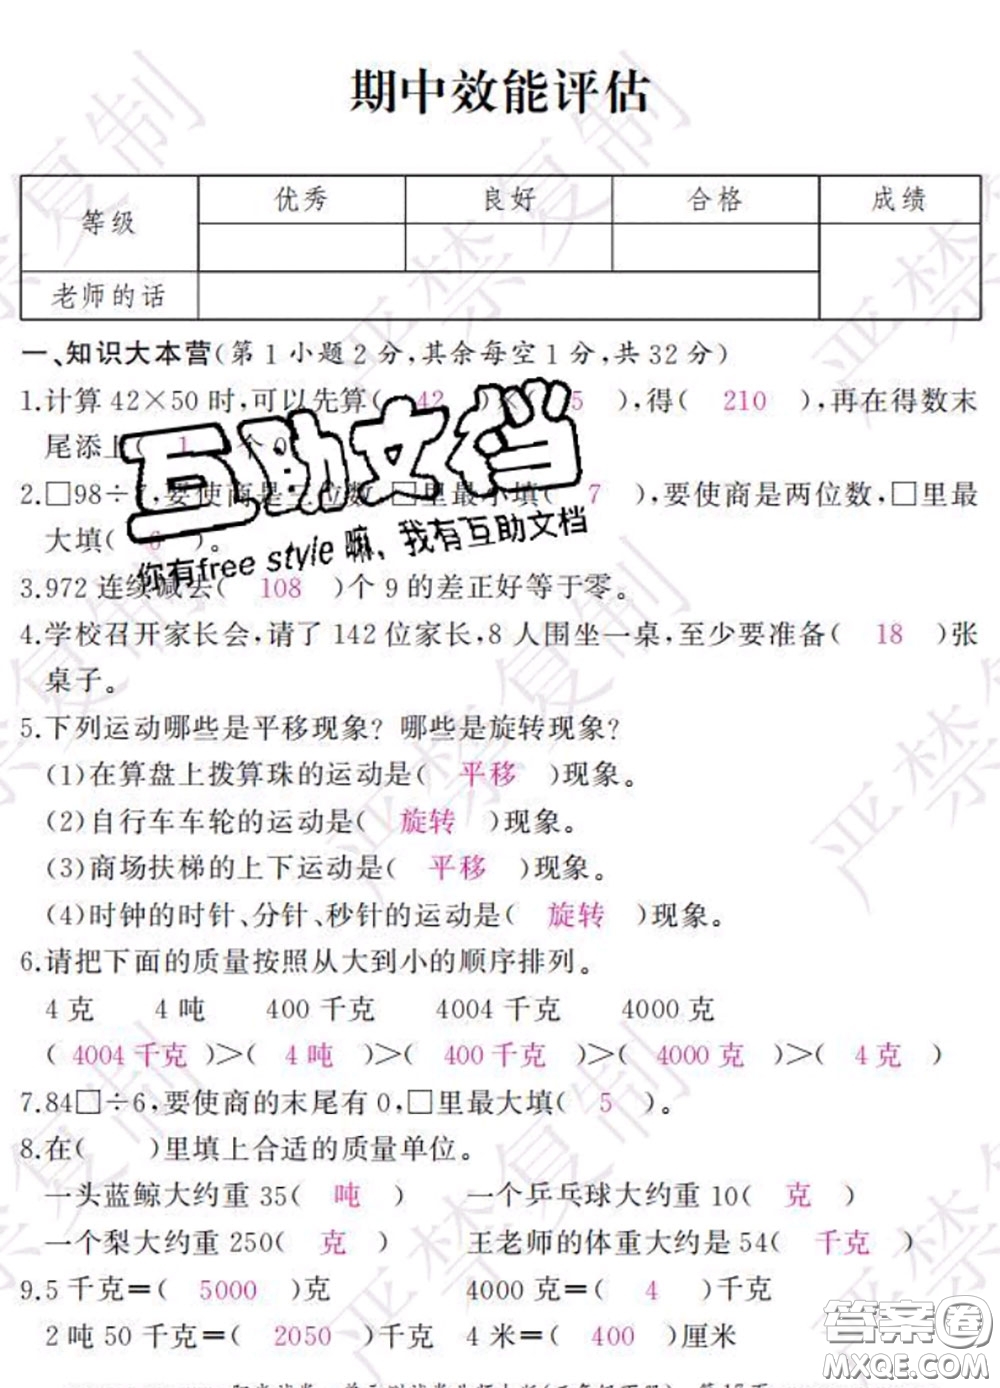 期中效能评估
等级 优秀 良好 合格 成绩
老师的话
一、知识大本营(第1小题2分,其余每空1分,共32分)
1.计算42×50时,可以先算( 42 )×( 5 ),得( 210 ),再在得数末
尾添上( 1 )个0
2.□98÷7,要使商是三位数,□里最小填( 7 ),要使商是两位数,□里最
大填( 6 )。
3.972连续减去( 108 )个9的差正好等于零。
4.学校召开家长会,请了142位家长,8人围坐一桌,至少要准备( 18 )张
桌子。
5.下列运动哪些是平移现象?哪些是旋转现象?
(1)在算盘上拨算珠的运动是( 平移 )现象。
(2)自行车车轮的运动是( 旋转 )现象。
(3)商场扶梯的上下运动是( 平移 )现象。
(4)时钟的时针、分针、秒针的运动是( 旋转 )现象。
6.请把下面的质量按照从大到小的顺序排列。
4克 4吨 400千克 4004千克 4000克
( 4004千克 )>( 4吨 )>( 400千克 )>( 4000克 )>( 4克 )
7.84□÷6,要使商的末尾有0,□里最大填( 5 )。
8.在( )里填上合适的质量单位。
一头蓝鲸大约重35( 吨 ) 一个乒乓球大约重10( 克 )
一个梨大约重250( 克 ) 王老师的体重大约是54( 千克 )
9.5千克=( 5000 )克 4000克=( 4 )千克
2吨50千克=( 2050 )千克 4米=( 400 )厘米
互助文档
你有free style嘛、我有互助文档
严禁复制
答案圈
MXQE.COM